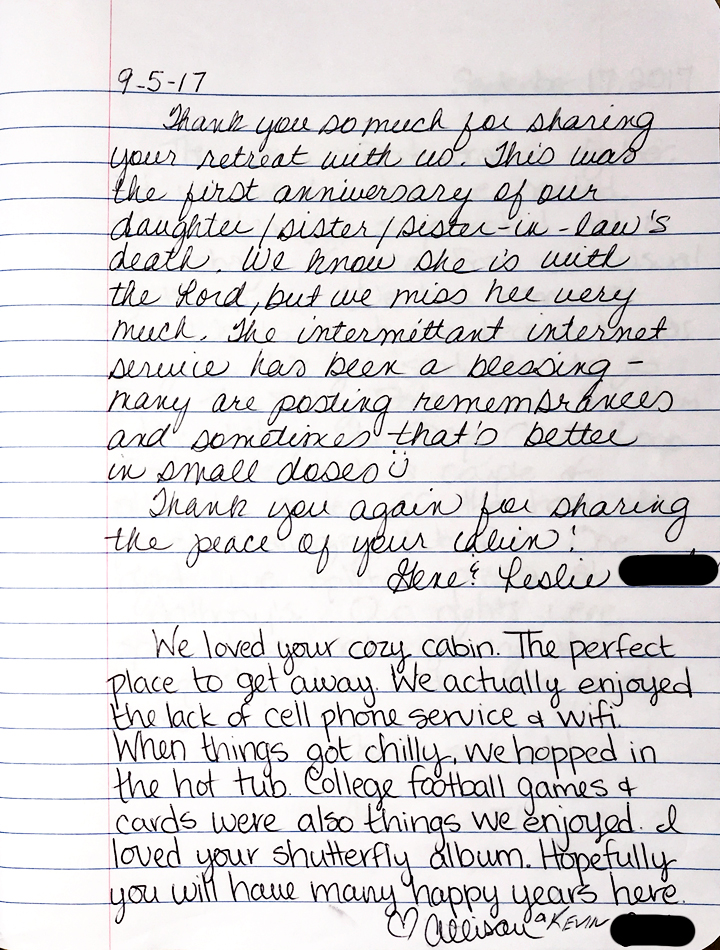 9-5-17
Thank you so much for sharing
your retreat with us. This was
the first anniversary of our
daughter/sister/sister-in-law's
death. We know she is with
the Lord, but we miss her very
much. The intermittant internet
service has been a blessing –
many are posting remembrances
and sometimes that's better
in small doses
Thank you again for sharing
the peace of your cabin!
Gene & Leslie
We loved your cozy cabin. The perfect
place to get away. We actually enjoyed
the lack of cell phone service & wifi.
When things got chilly, we hopped in
the hot tub. College football games &
cards were also things we enjoyed. I
loved your shutterfly album. Hopefully
you will have many happy years here.
♡ Allison & KEVIN